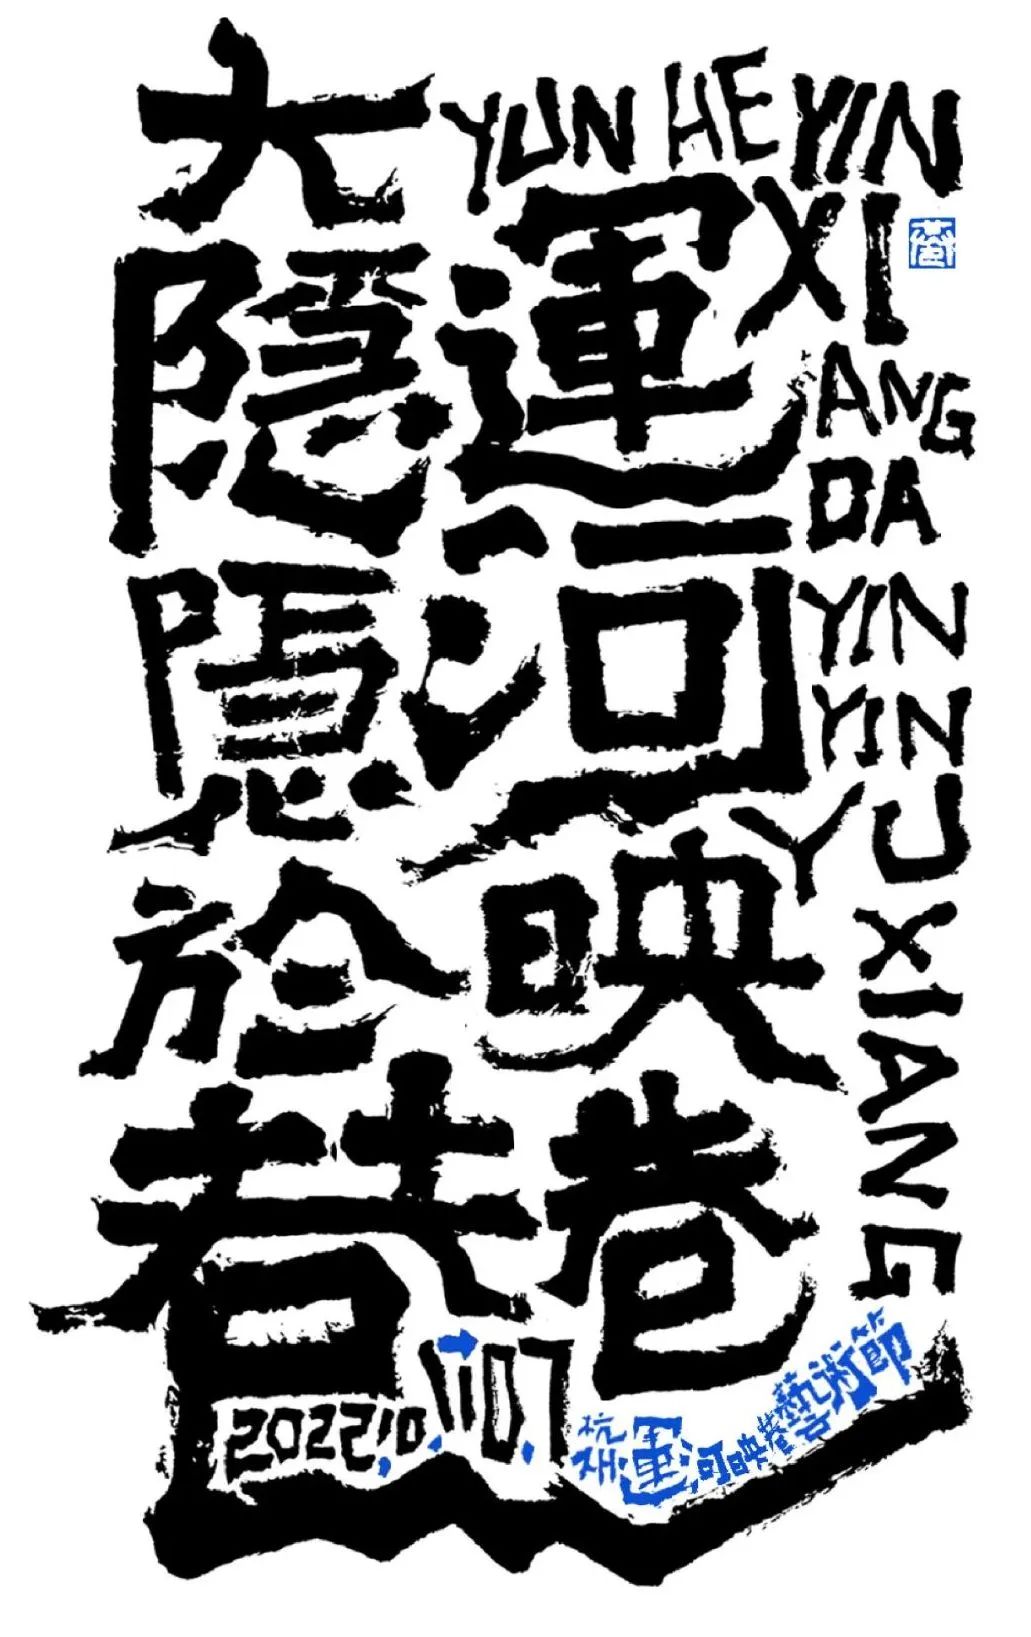 運河映巷
大隱隱於巷
YUN HE YIN
XI
ANG
DA
YIN
YIN
YU
XIANG
2022,10.1→10.7
杭州·運河映巷藝術節